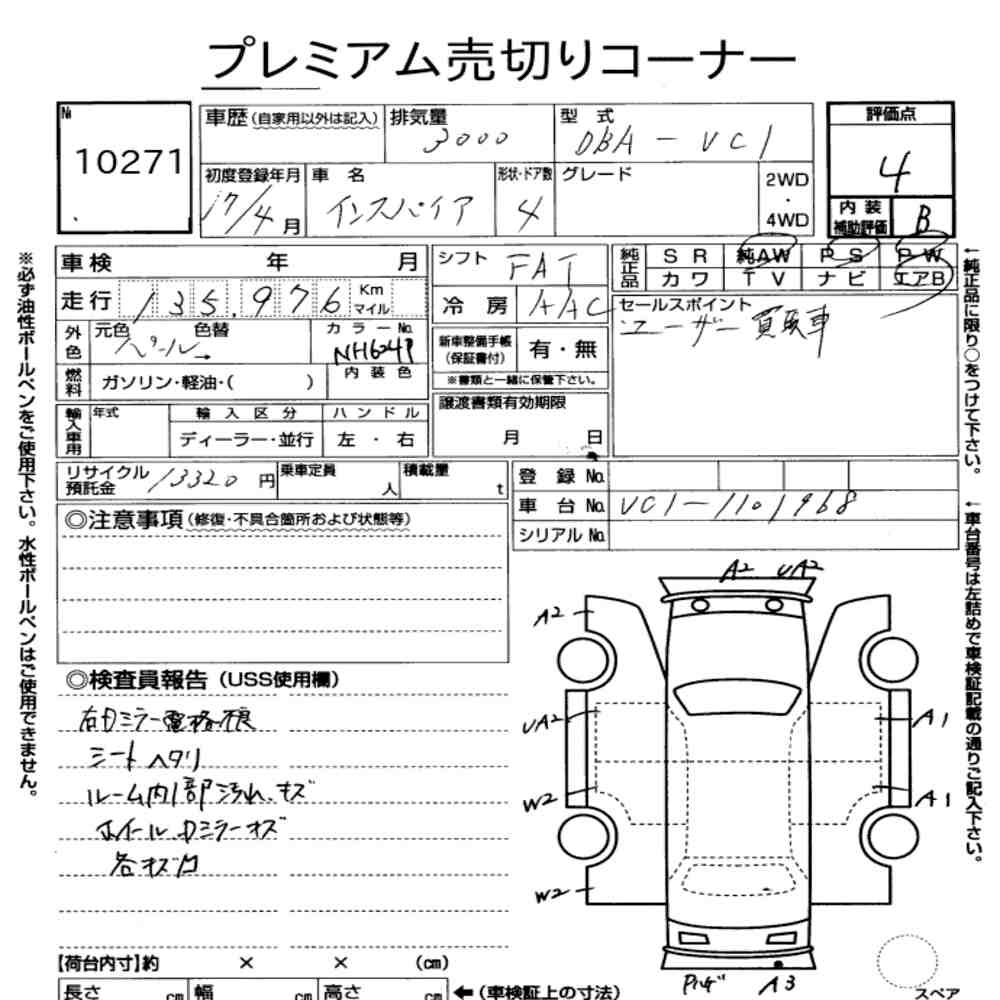 プレミアム売切りコーナー
№ 10271
車歴 (自家用以外は記入) 排気量 3000 型式 DBA-VC1
評価点 4
初度登録年月 17/4月 車名 インスパイア 形状・ドア数 4 グレード 2WD・4WD
内装補助評価 B
車検 年 月 シフト FAT 純正品 SR 純AW PS PW
走行 135,976 Km マイル 冷房 AAC カワ TV ナビ エアB
外色 元色 パール→ 色替 カラーNo. NH624P
セールスポイント
ユーザー買取車
新車整備手帳(保証書付) 有・無
燃料 ガソリン・軽油・( ) 内装色
※書類と一緒に保管下さい。
輸入車用 年式 輸入区分 ハンドル
ディーラー・並行 左・右
譲渡書類有効期限
月 日
リサイクル預託金 13320円 乗車定員 人 積載量 t
登録No.
車台No. VC1-1101968
シリアルNo.
◎注意事項(修復・不具合箇所および状態等)
◎検査員報告(USS使用欄)
右Dミラー電格不良
シートヘタリ
ルーム内1部汚れ、キズ
ホイール、Dミラーキズ
各キズ凹
A2 UA2
A2
UA2 A1
W2 A1
W2
A3
スペア
【荷台内寸】約 × × (cm)
長さ cm 幅 cm 高さ cm ←(車検証上の寸法)
※必ず油性ボールペンをご使用下さい。水性ボールペンはご使用できません。
←純正品に限り○をつけて下さい。
←車台番号は左詰めで車検証記載の通りご記入下さい。